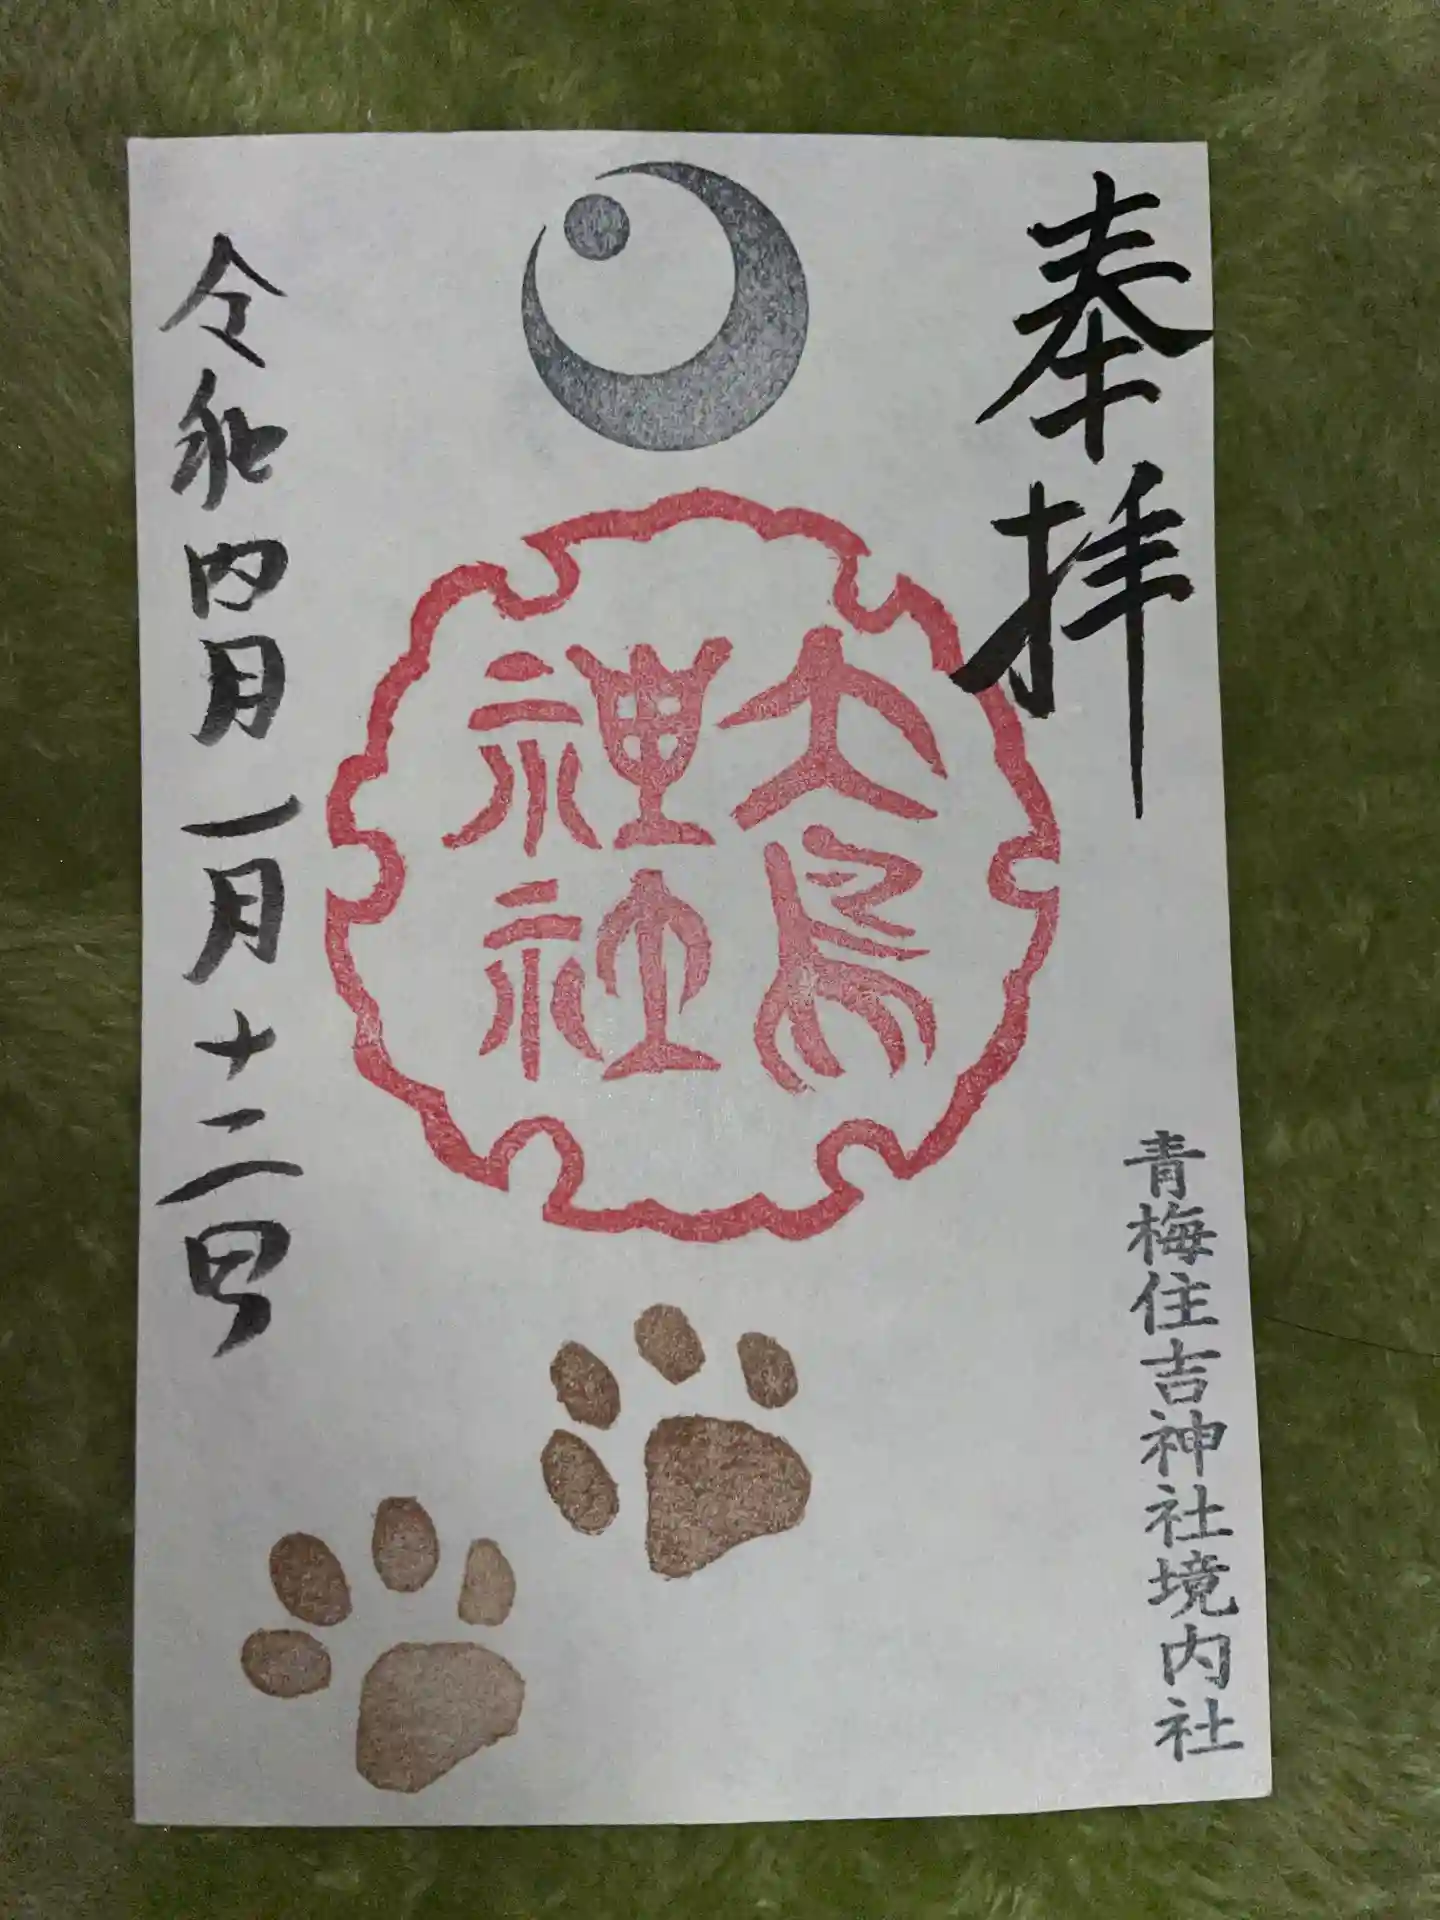 奉拝
青梅住吉神社境内社
大鳥
神社
令和四年一月十二日